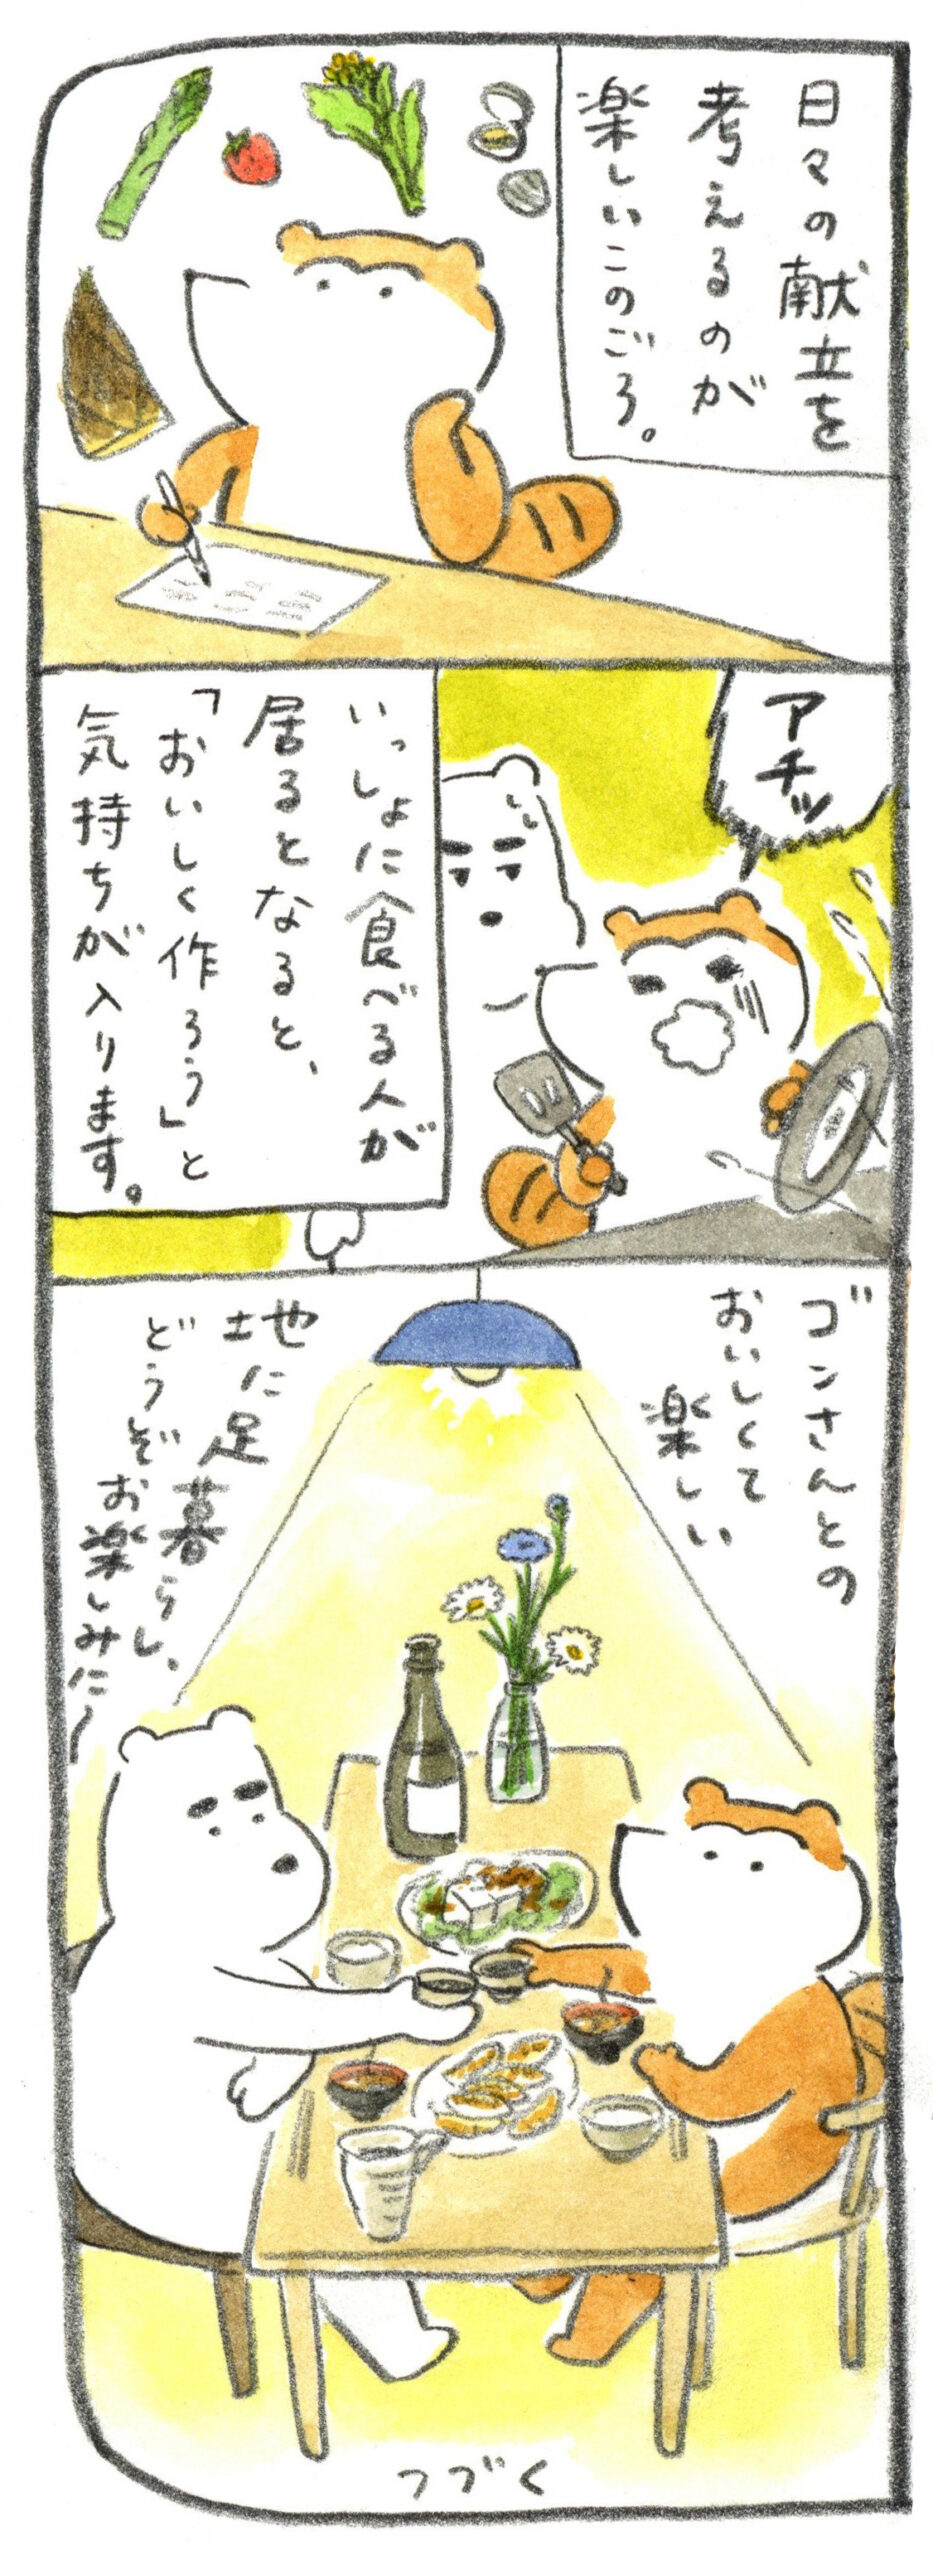 日々の献立を
考えるのが
楽しいこのごろ。
アチッ
いっしょに食べる人が
居るとなると、
「おいしく作ろう」と
気持ちが入ります。
ゴンさんとの
おいしくて
楽しい
地に足
暮らし、
どうぞ
お楽しみに〜
つづく